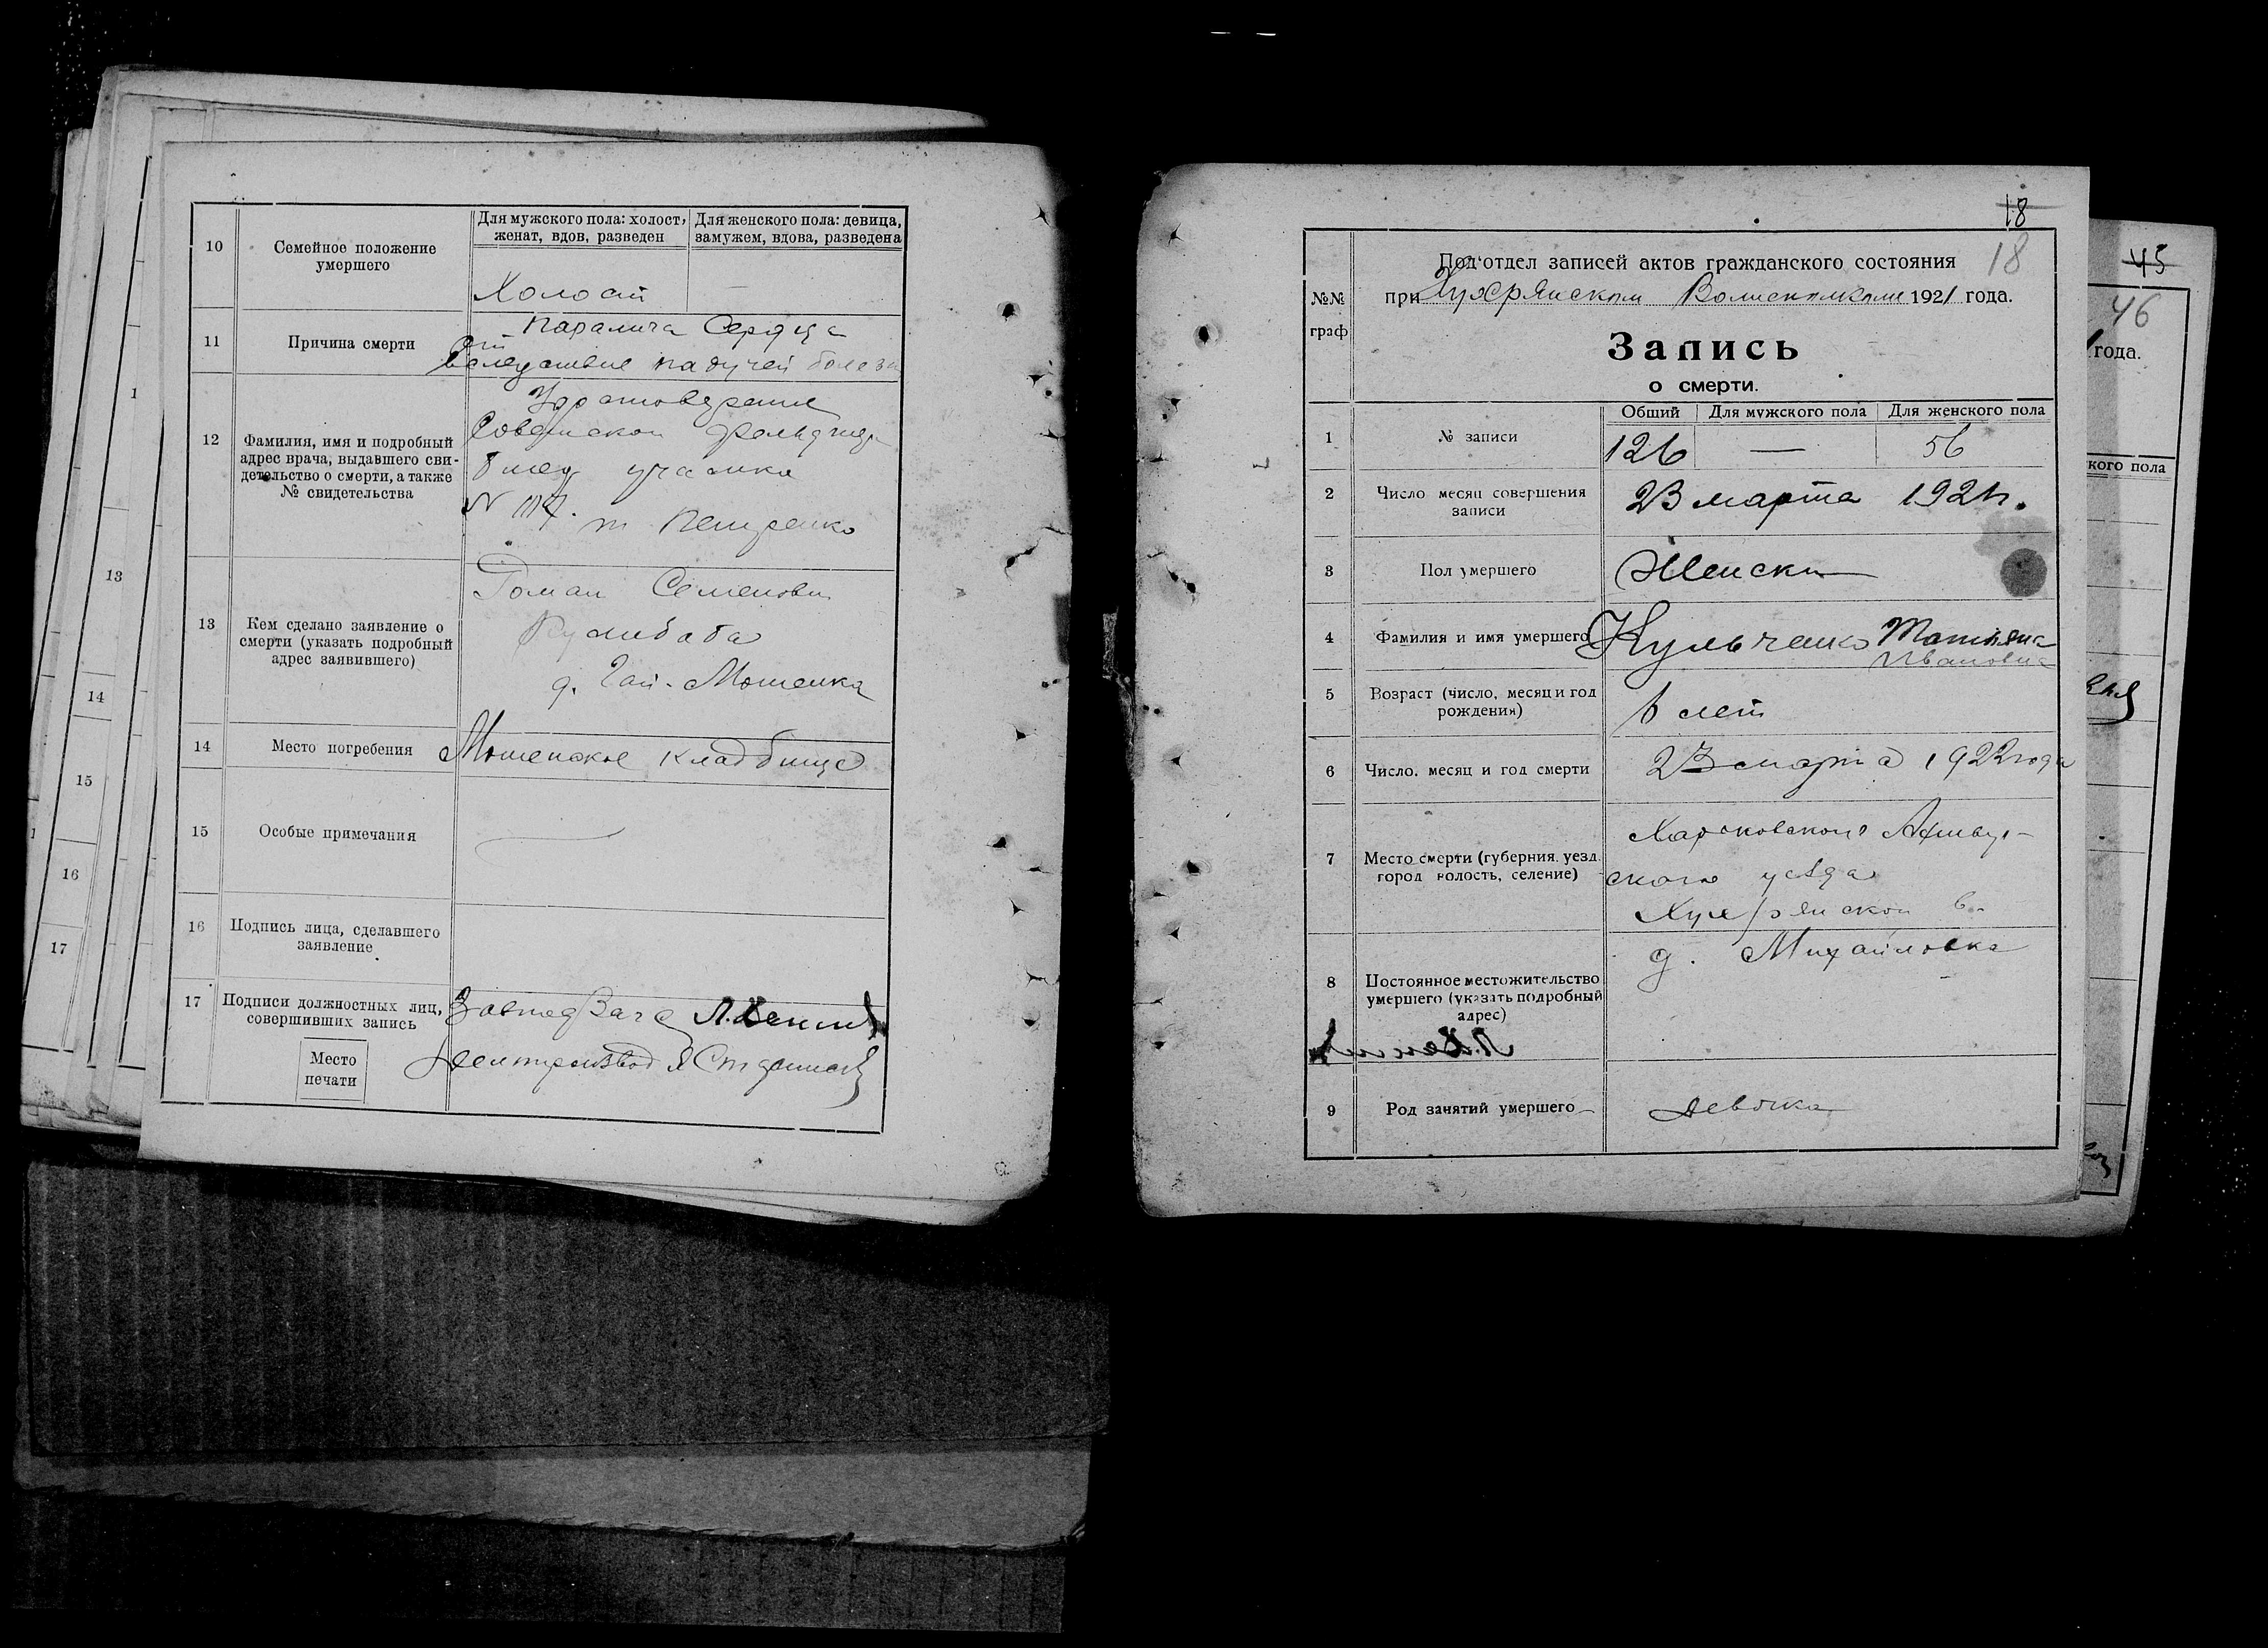 10
Семейное положение
умершего
Для мужского пола: холост,
женат, вдов, разведен
Для женского пола: девица,
замужем, вдова, разведена
Холост
—
11
Причина смерти
От паралича Сердца
вследствие падучей болезни
12
Фамилия, имя и подробный
адрес врача, выдавшего сви-
детельство о смерти, а также
№ свидетельства
участка
N
т Петренко
13
Кем сделано заявление о
смерти (указать подробный
адрес заявившего)
Роман Семенович
Кулибаба
д. Гай-Мошенка
14
Место погребения
Мошенское кладбище
15
Особые примечания
16
Подпись лица, сделавшего
заявление
17
Подписи должностных лиц,
совершивших запись
Место
печати
13
14
15
16
17
18
18
№№
граф
Под'отдел записей актов гражданского состояния
при Хухрянском Волисполкоме 1921 года.
Запись
о смерти.
Общий
Для мужского пола
Для женского пола
1
№ записи
126
—
56
2
Число месяц совершения
записи
23 марта 192
3
Пол умершего
Женский
4
Фамилия и имя умершего
Кульченко Татьяна
Ивановна
5
Возраст (число, месяц и год
рождения)
6 лет
6
Число, месяц и год смерти
23 марта 1922 года
7
Место смерти (губерния, уезд,
город волость, селение)
Харьковской Ахтыр-
ского уезда
Хухрянской в.
д. Михайловка
8
Постоянное местожительство
умершего (указать подробный
адрес)
9
Род занятий умершего
девочка
45
46
года.
кого пола